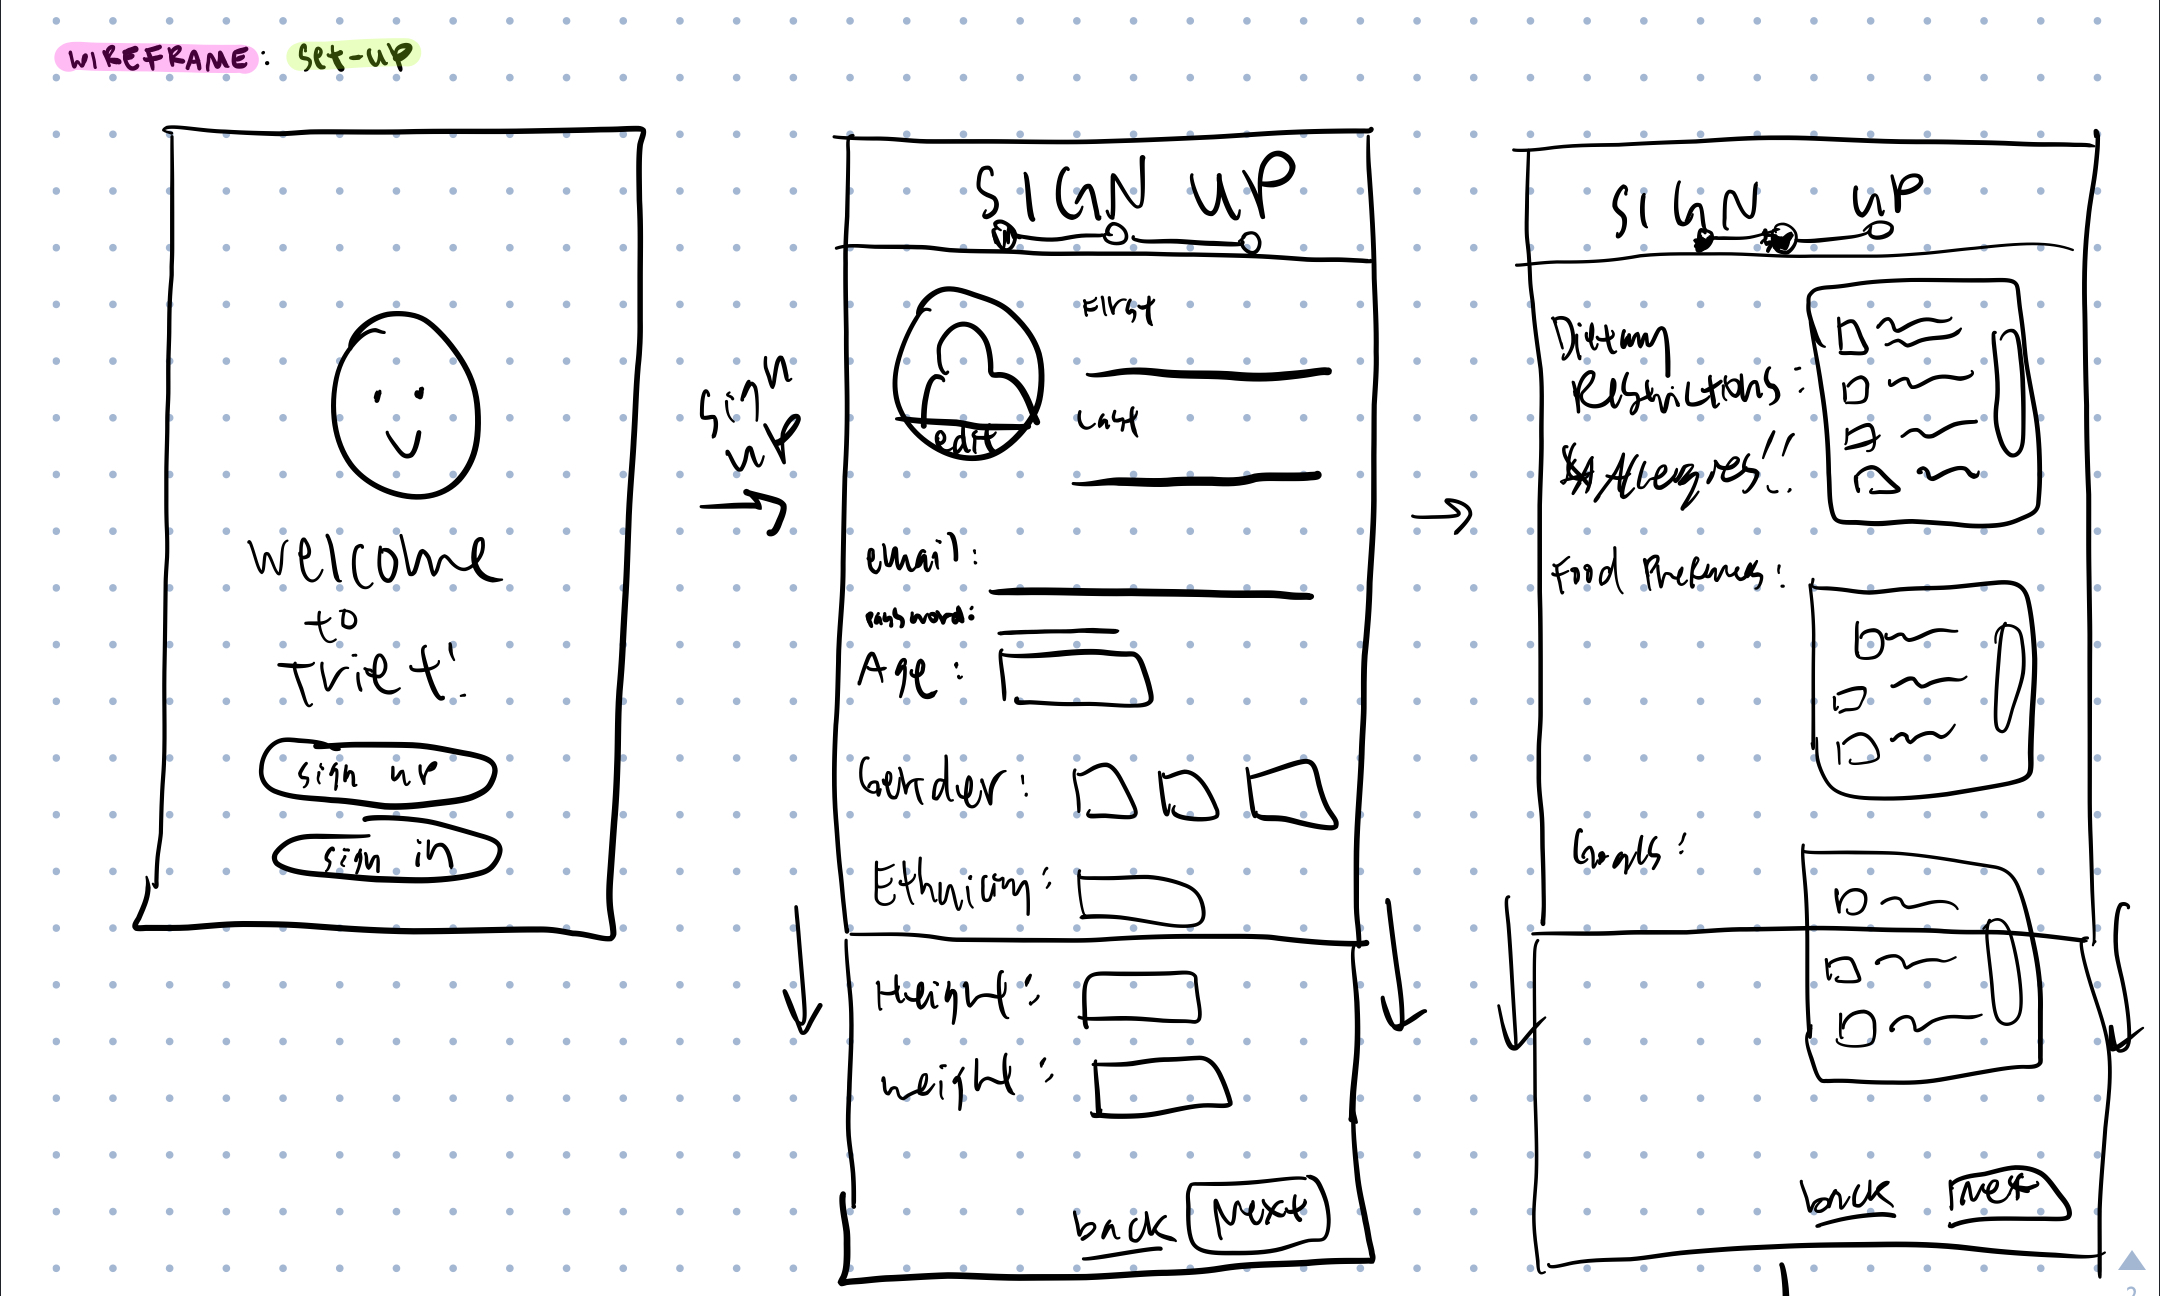 WIREFRAME: set-up
welcome
to
Triet!
sign up
sign in
sign
up
SIGN UP
First
Last
edit
email:
password:
Age:
Gender:
Ethnicity:
Height:
weight:
back Next
SIGN UP
Dietary
Restrictions:
& Allergies!!
Food Preferences:
Goals:
back next
2